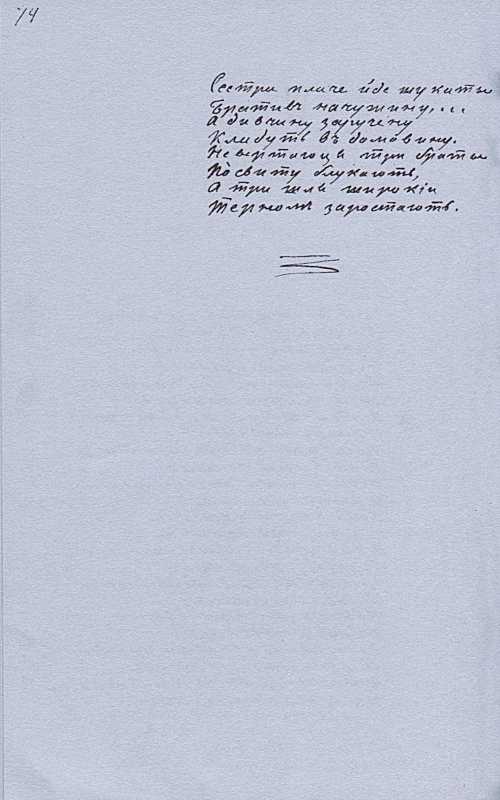 74
Сестра плаче йде шукаты
Бративъ начужину,...
А дивчину заручену
Кладуть въ домовину.
Невертаюця три браты
Посвиту блукають,
А три широкіи
Терномъ заростають.